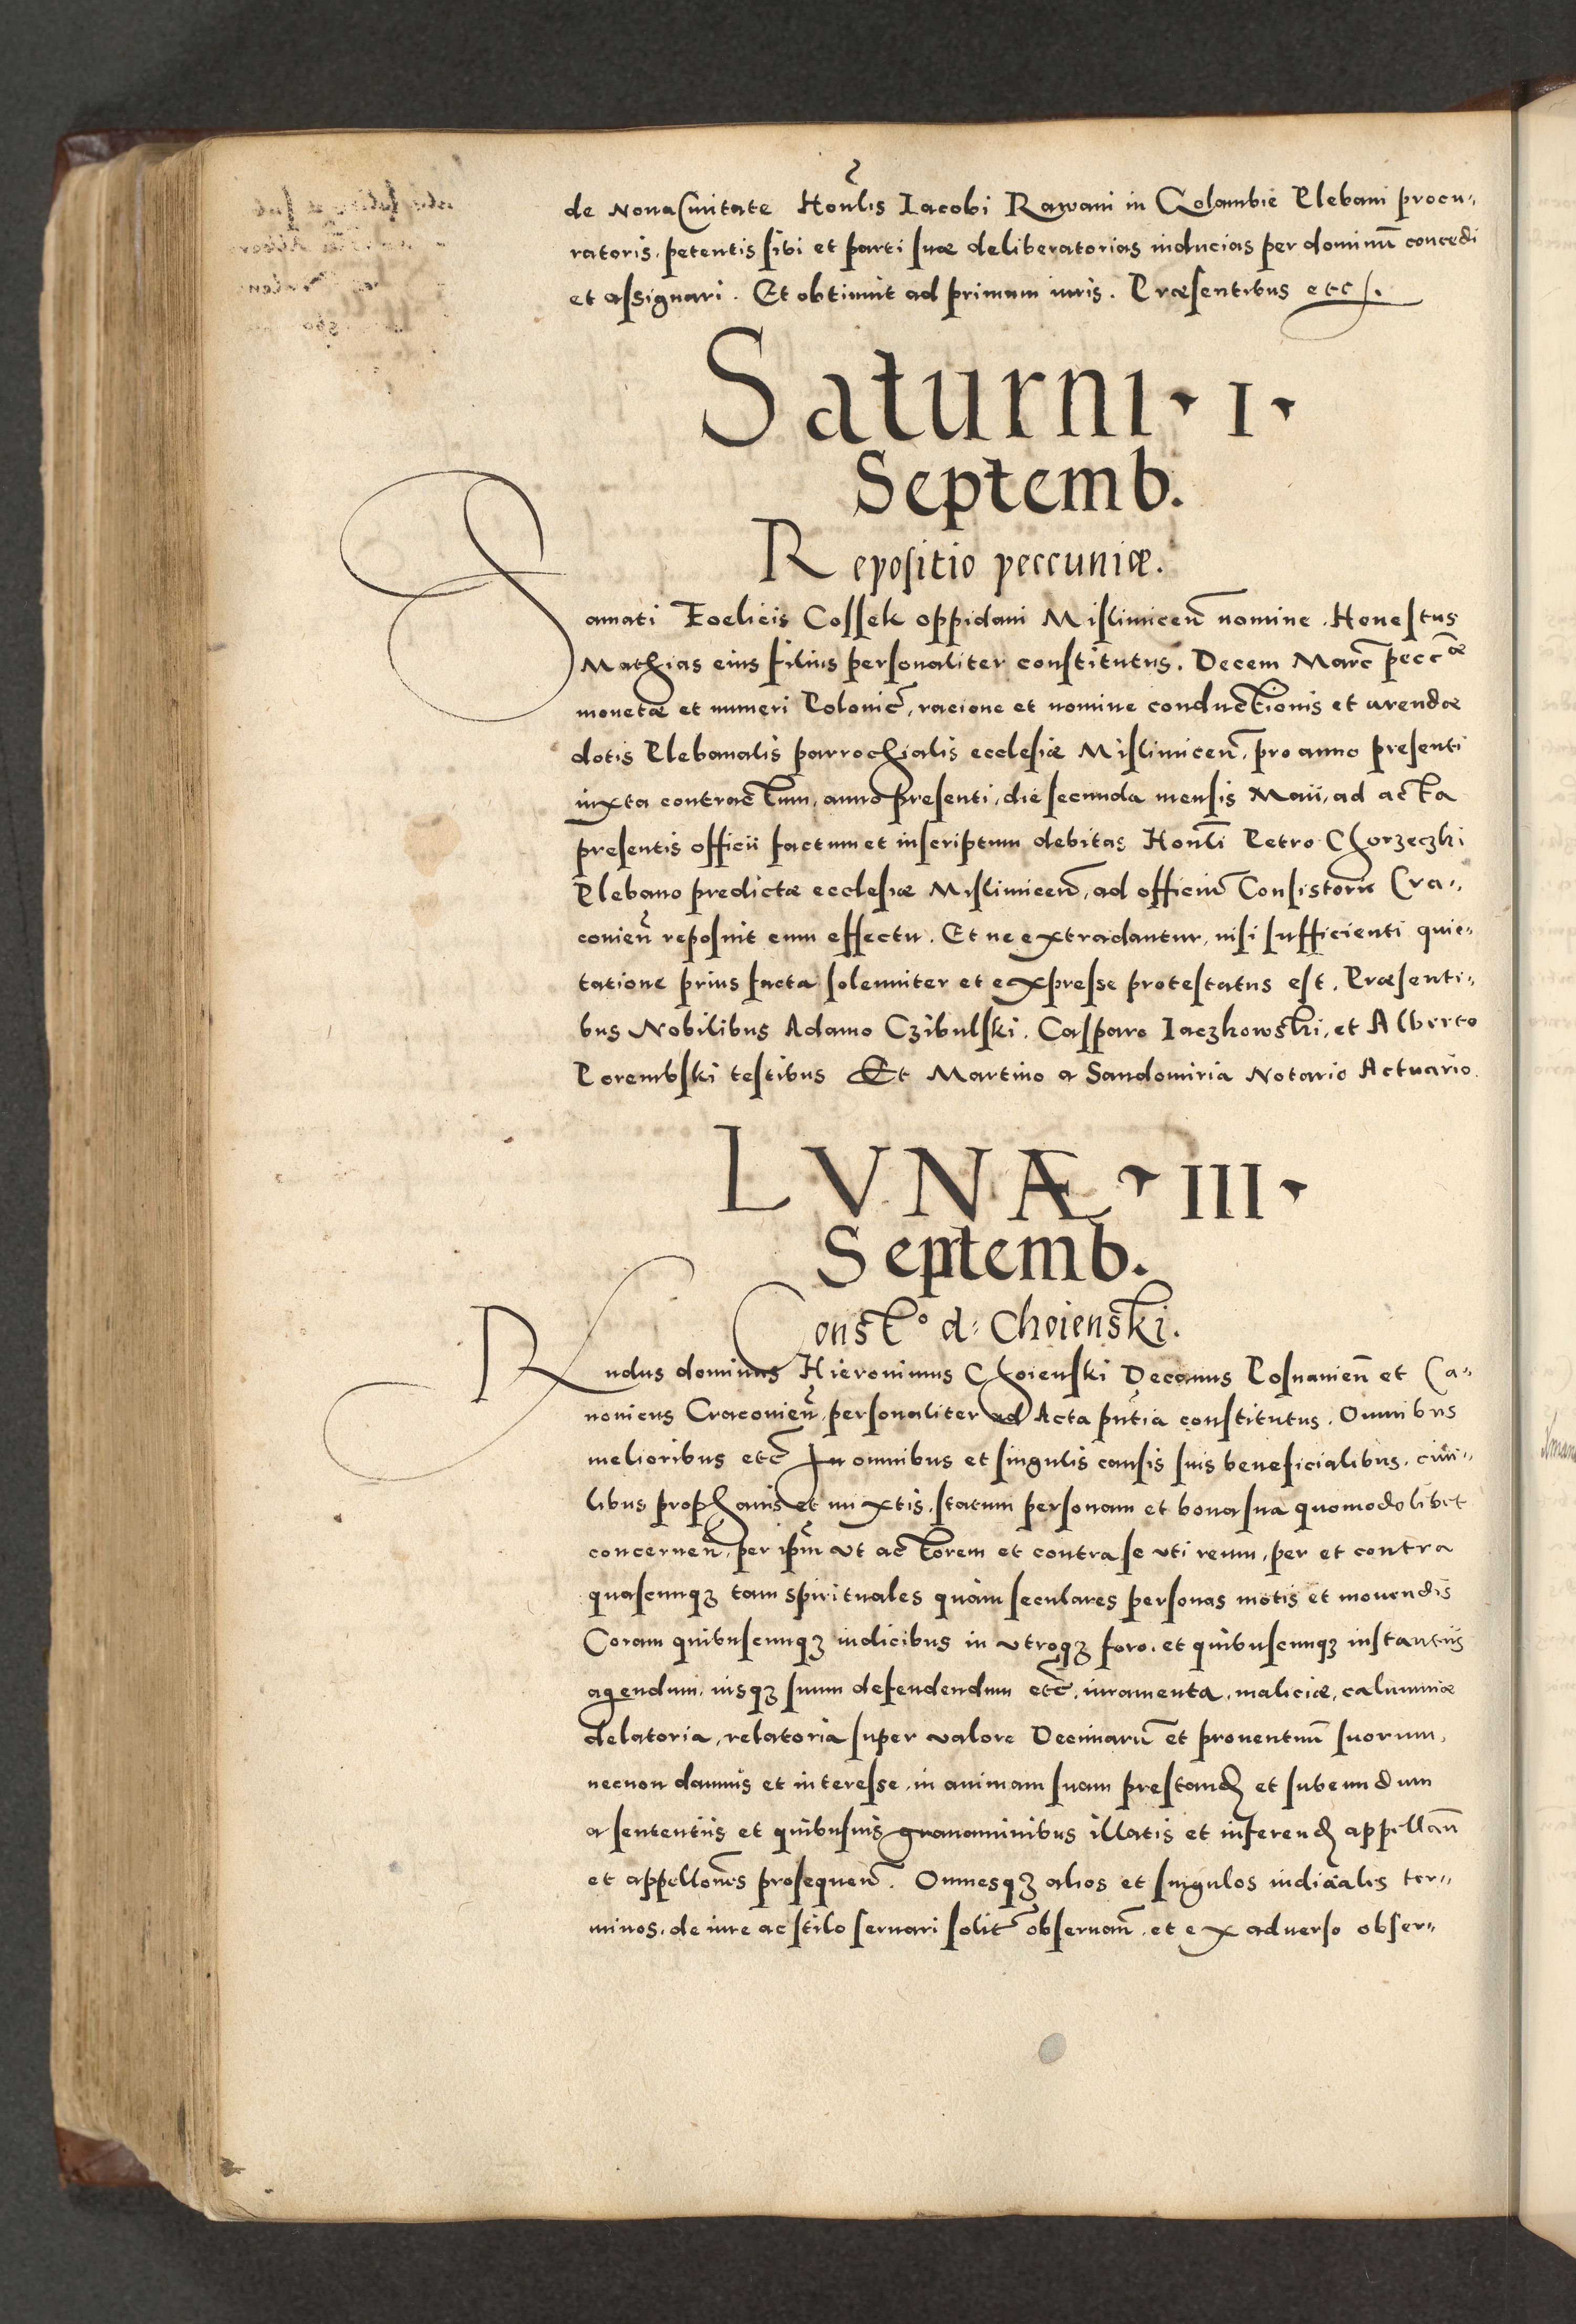 de Noua Ciuitate Hon̄lis Iacobi Rawani in Golambie Plebani procu-
ratoris, petentis sibi et parti suæ deliberatorias inducias per dominū concedi
et assignari. Et obtinuit ad primam iuris. Præsentibus etc.
Saturni · I ·
Septemb.
Repositio peccuniæ.
Famati Foelicis Cossek oppidani Mislimiceñ nomine. Honestus
Mathias eius filius personaliter constitutus. Decem Marc̄ pecc̄æ
monetæ et numeri Polonic̄, racione et nomine conductionis et arendæ
dotis Plebanalis parrochialis ecclesiæ Mislimiceñ, pro anno presenti
iuxta contractum, anno presenti, die secunda mensis Maii, ad acta
presentis officii factum et inscriptum debitas Hon̄li Petro Chorzeczki
Plebano predictæ ecclesiæ Mislimiceñ, ad officiū Consistorii Cra-
conieñ reposuit cum effectu. Et ne extradantur, nisi sufficienti quie-
tatione prius facta solenniter et expresse protestatus est. Præsenti-
bus Nobilibus Adamo Czibulski. Casparo Iaczkowski, et Alberto
Porembski testibus Et Martino a Sandomiria Notario Actuario.
LVNÆ · III ·
Septemb.
Constᵒ d: Choienski.
Rndus dominus Hieronimus Choienski Decanus Posnanieñ et Ca-
nonicus Craconieñ, personaliter ad Acta pñtia constitutus. Omnibus
melioribus etc̄ In omnibus et singulis causis suis beneficialibus, ciui-
libus prophanis et mixtis, statum personam et bona sua quomodolibet
concerneñ, per ipm̄ vt actorem et contra se vti reum, per et contra
quascunqꝫ tam spirituales quàm seculares personas motis et mouendis
Coram quibuscunqꝫ iudicibus in vtroqꝫ foro, et quibuscunqꝫ instantiis
agendum, iusqꝫ suum defendendum etc̄, iuramenta, maliciæ, calumniæ
delatoria, relatoria super valore Decimarū et prouentuū suorum,
necnon damnis et interesse, in animam suam prestand̄ et subeundum
a sententiis et quibusuis grauaminibus illatis et inferend̄ appellañ
et appellōnes prosequeñ. Omnesqꝫ alios et singulos iudiciales ter-
minos, de iure ac stilo seruari solit̄ obseruañ, et ex aduerso obser-